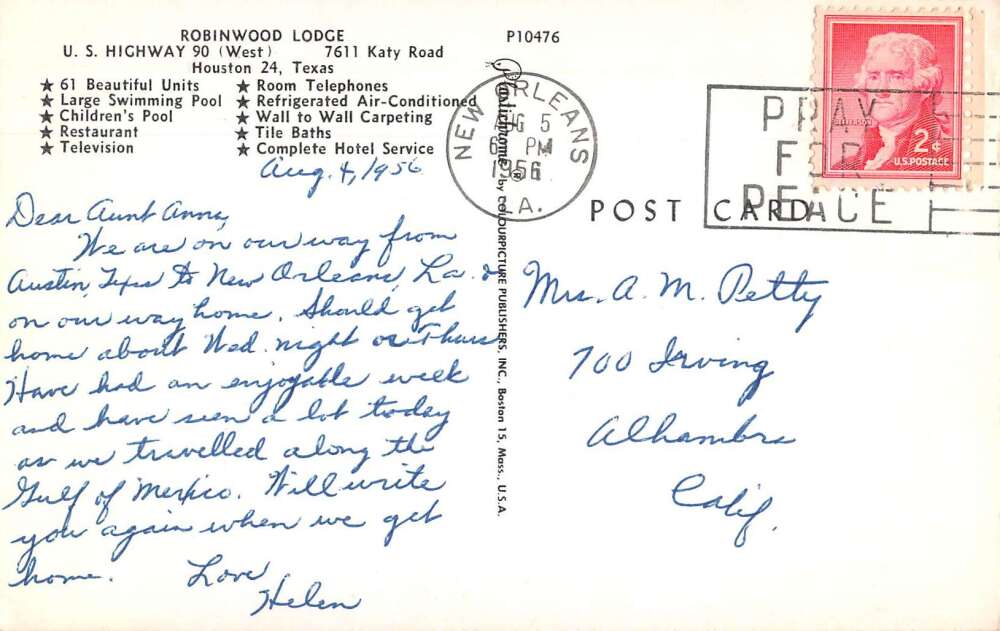 ROBINWOOD LODGE
U. S. HIGHWAY 90 (West) 7611 Katy Road
Houston 24, Texas
★ 61 Beautiful Units
★ Large Swimming Pool
★ Children's Pool
★ Restaurant
★ Television
★ Room Telephones
★ Refrigerated Air-Conditioned
★ Wall to Wall Carpeting
★ Tile Baths
★ Complete Hotel Service
P10476
Aug. 4, 1956
Dear Aunt Anna,
We are on our way from
Austin, Texas to New Orleans, La. &
on our way home. Should get
home about Wed. night or Thurs
Have had an enjoyable week
and have seen a lot today
as we travelled along the
Gulf of Mexico. Will write
you again when we get
home. Love,
Helen
Plastichrome® by COLOURPICTURE PUBLISHERS, INC., Boston 15, Mass., U.S.A.
NEW ORLEANS
AUG 5
6 PM
1956
LA.
PRAY
FOR
PEACE
JEFFERSON
2¢
U.S. POSTAGE
POST CARD
Mrs. A. M. Petty
700 Irving
Alhambra
Calif.